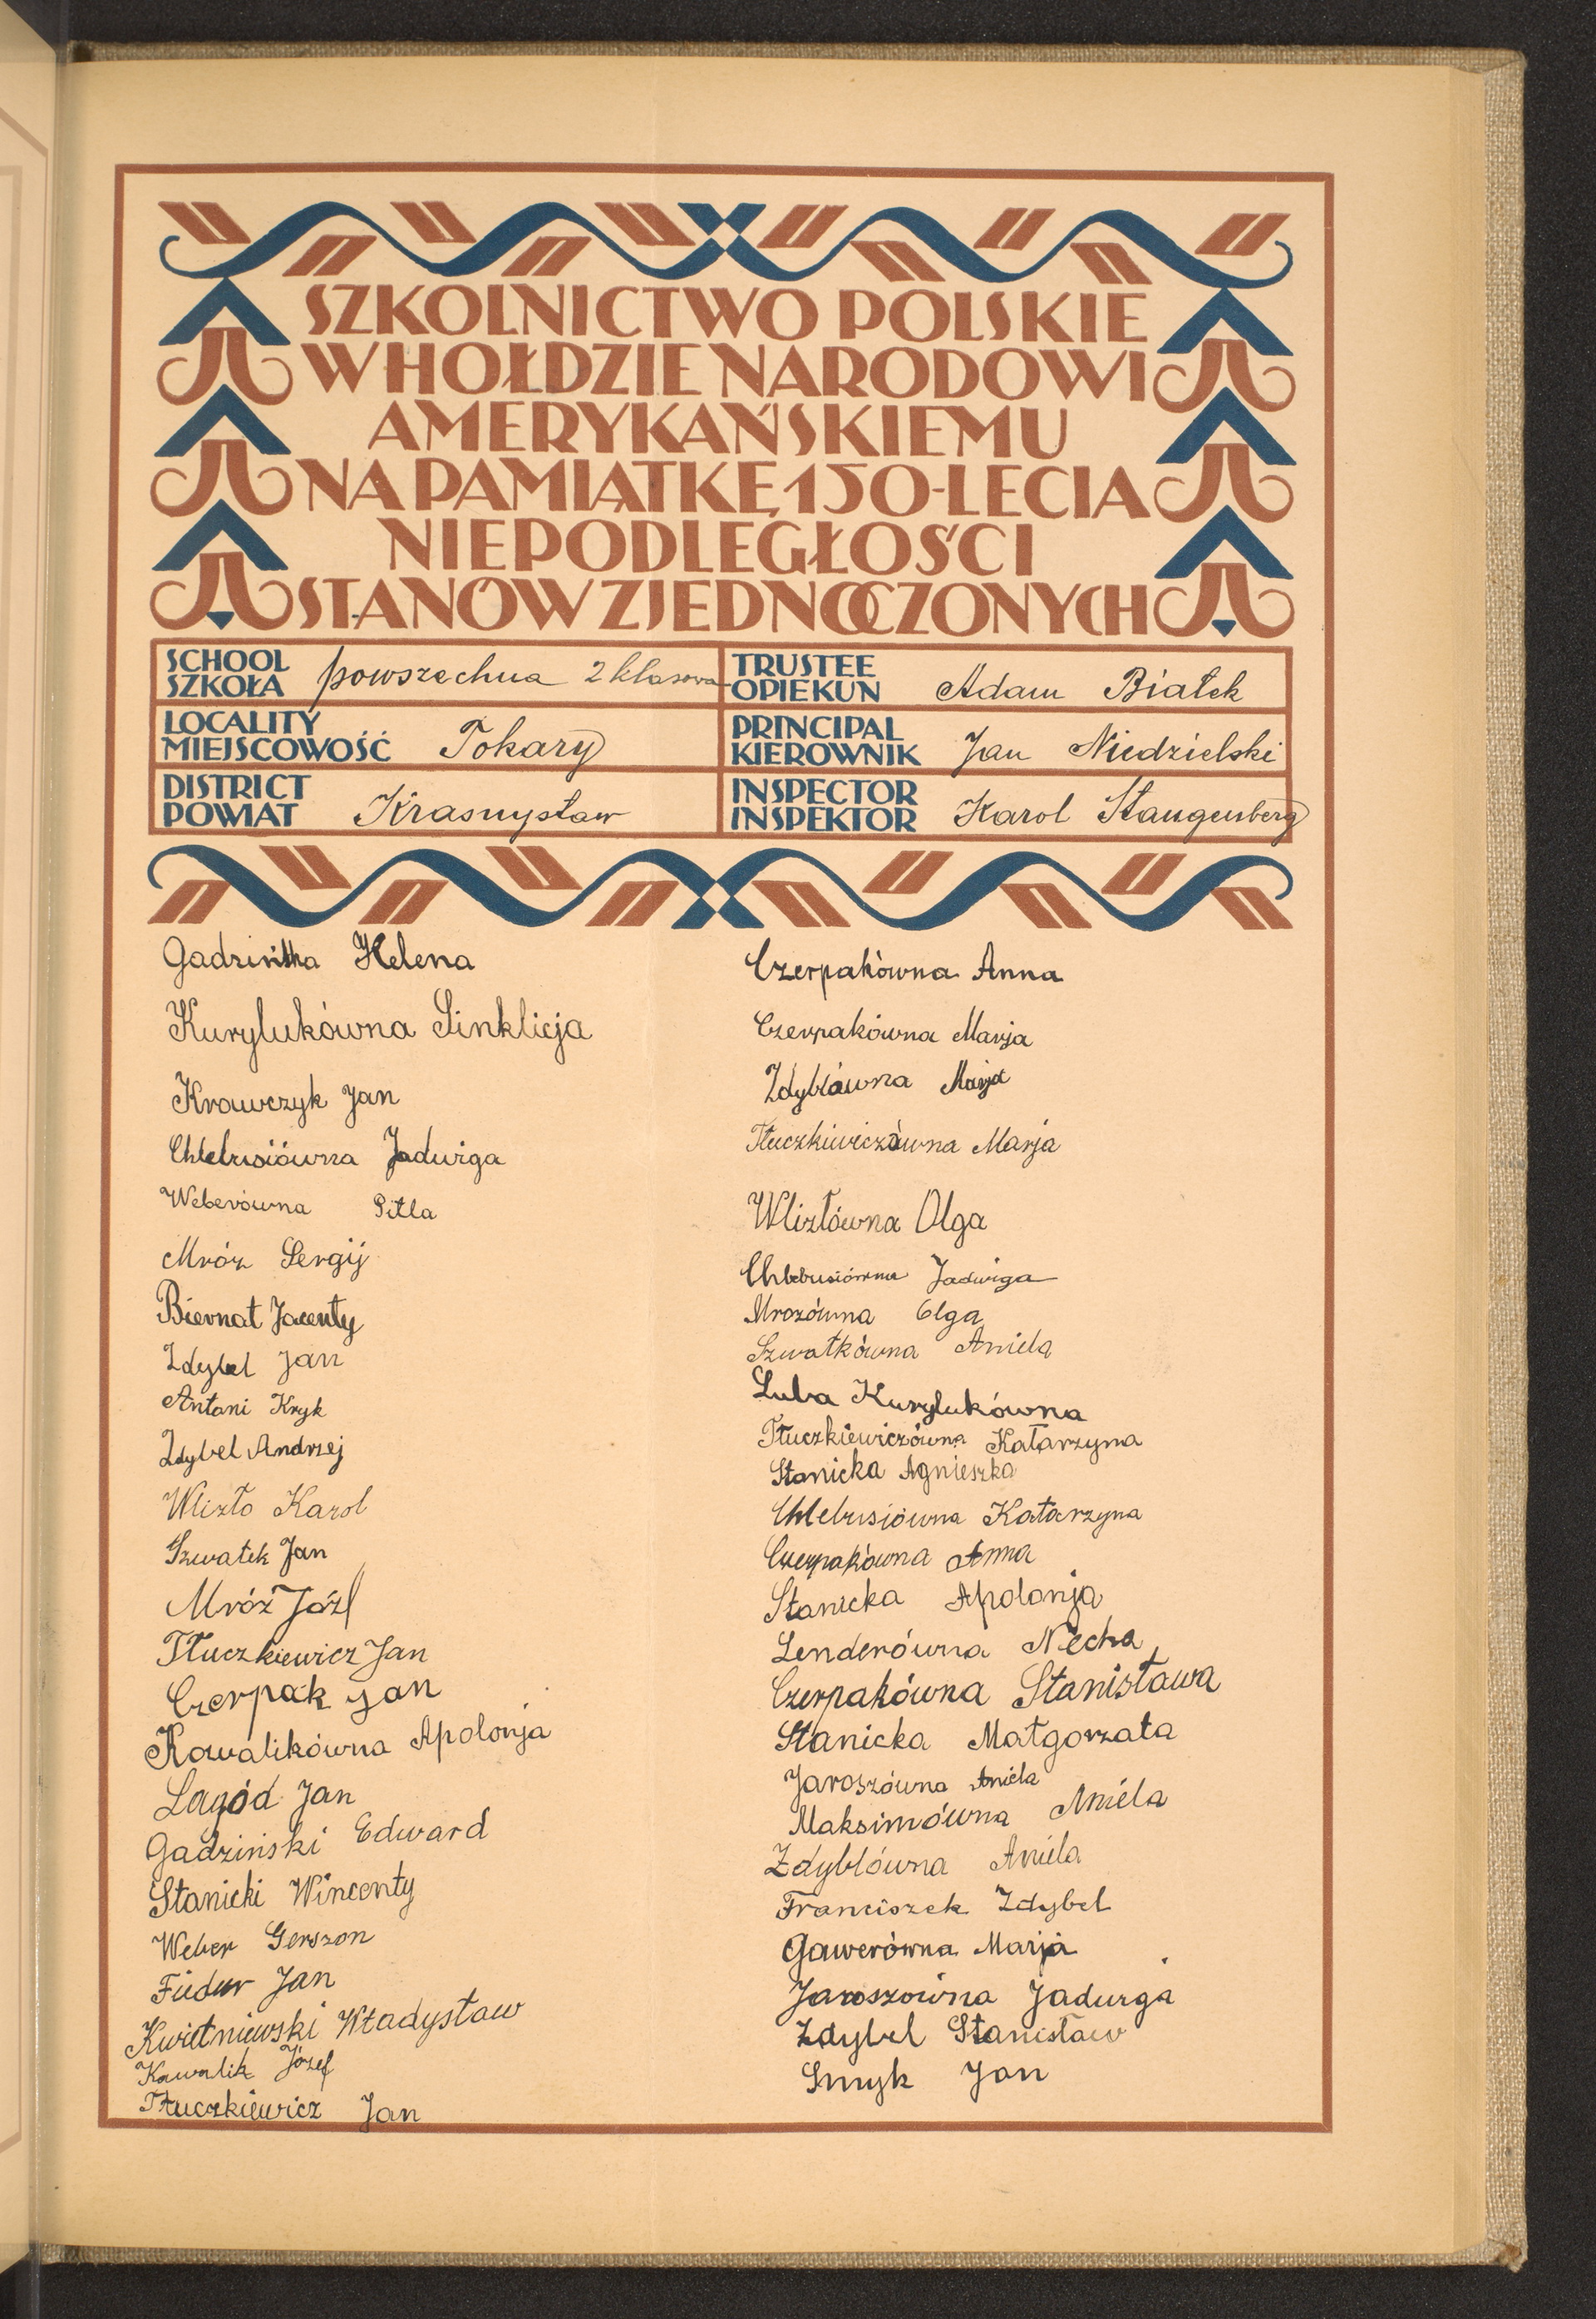 SZKOLNICTWO POLSKIE
W HOŁDZIE NARODOWI
AMERYKAŃSKIEMU
NA PAMIĄTKĘ 150-LECIA
NIEPODLEGŁOŚCI
STANÓW ZJEDNOCZONYCH
SCHOOL
SZKOŁA powszechna 2 klasowa
TRUSTEE
OPIEKUN Adam Białek
LOCALITY
MIEJSCOWOŚĆ Tokary
PRINCIPAL
KIEROWNIK Jan Niedzielski
DISTRICT
POWIAT Krasnystaw
INSPECTOR
INSPEKTOR Karol Stangenberg
Helena
Kurylukówna Sinklicja
Krawczyk Jan
Chlebusiówna Jadwiga
Weberówna Pitla
Mróz Sergij
Biernat Jacenty
Zdybel Jan
Antoni Kryk
Zdybel Andrzej
Wlizło Karol
Szwatek Jan
Mróz Józf
Tłuczkiewicz Jan
Czerpak Jan
Kowalikówna Apolonja
Łagód Jan
Gadziński Edward
Stanicki Wincenty
Weber Gerszon
Fiedur Jan
Kwietniewski Władysław
Kawalik Józef
Tłuczkiewicz Jan
Czerpakówna Anna
Czerpakówna Marja
Zdyblówna Marja
Tłuczkiewiczówna Marja
Wlizłówna Olga
Chlebusiówna Jadwiga
Mrozówna Olga
Szwatkówna Aniela
Luba Kurylukówna
Tłuczkiewiczówna Katarzyna
Stanicka Agnieszka
Chlebusiówna Katarzyna
Czerpakówna Anna
Stanicka Apolonja
Lenderówna Necha
Czerpakówna Stanisława
Stanicka Małgorzata
Jaroszówna Aniela
Maksimówna Aniela
Zdyblówna Aniela
Franciszek Zdybel
Gawerówna Marja
Jaroszówna Jadwiga
Zdybel Stanisław
Smyk Jan